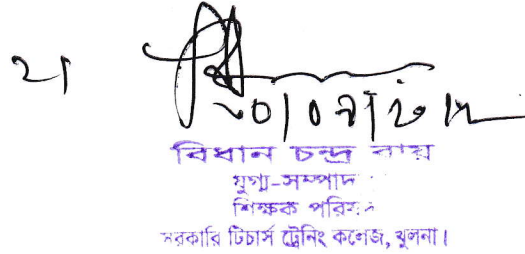 ২।
বিধান চন্দ্র রায়
যুগ্ম-সম্পাদ
শিক্ষক পরিষ
সরকারি টিচার্স ট্রেনিং কলেজ, খুলনা।